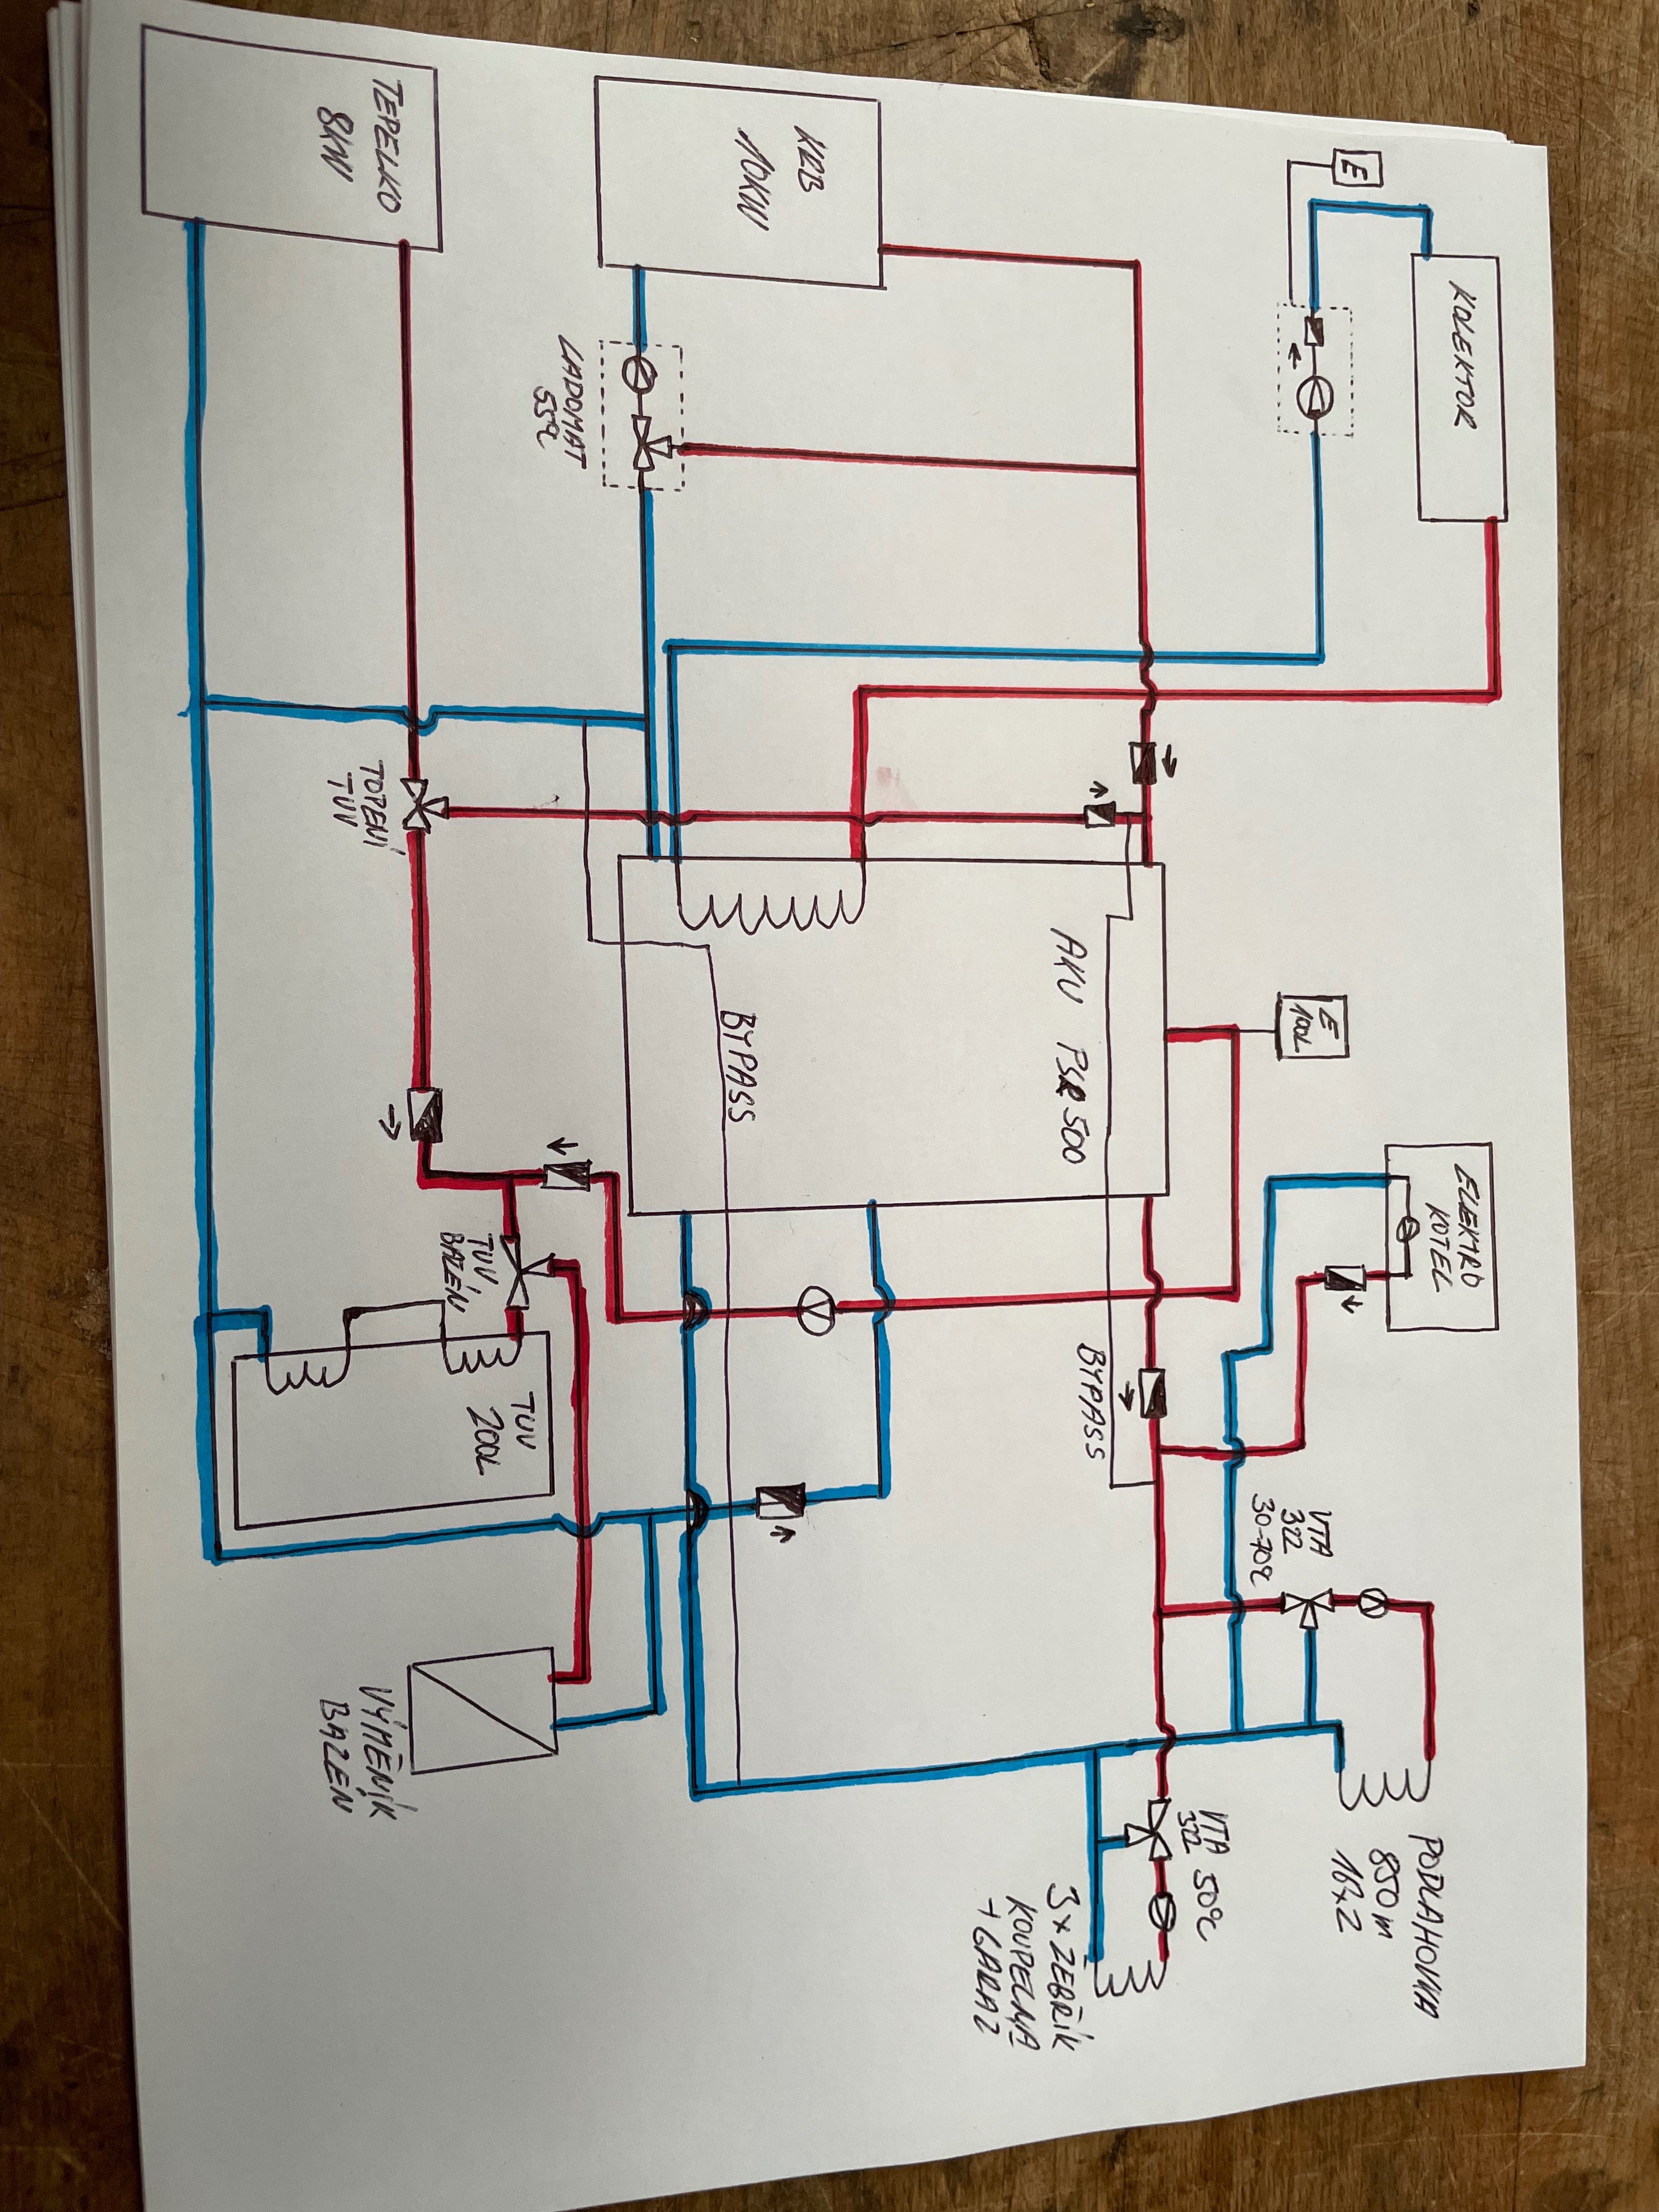 KOLEKTOR
E
KRB
10KW
LADDOMAT
55°C
TEPELKO
8KW
TOPENÍ
TUV
E
100L
ELEKTRO
KOTEL
AKU PSR 500
BYPASS
BYPASS
TUV
BAZÉN
TUV
200L
VÝMĚNÍK
BAZEN
VTA
322
30-70°C
PODLAHOVKA
850 m
16x2
VTA
322 50°C
3x ŽEBŘÍK
KOUPELNA
+ GARAZ